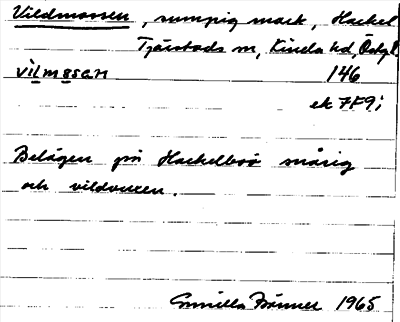 Vildmossen, sumpig mark, Hackel
Tjärstads sn, Kinda hd, Östgl.
vilmøsan 146
ek 7F9i
Belägen på Hackelboö snårig
och vildvuxen.
Gunilla 1965